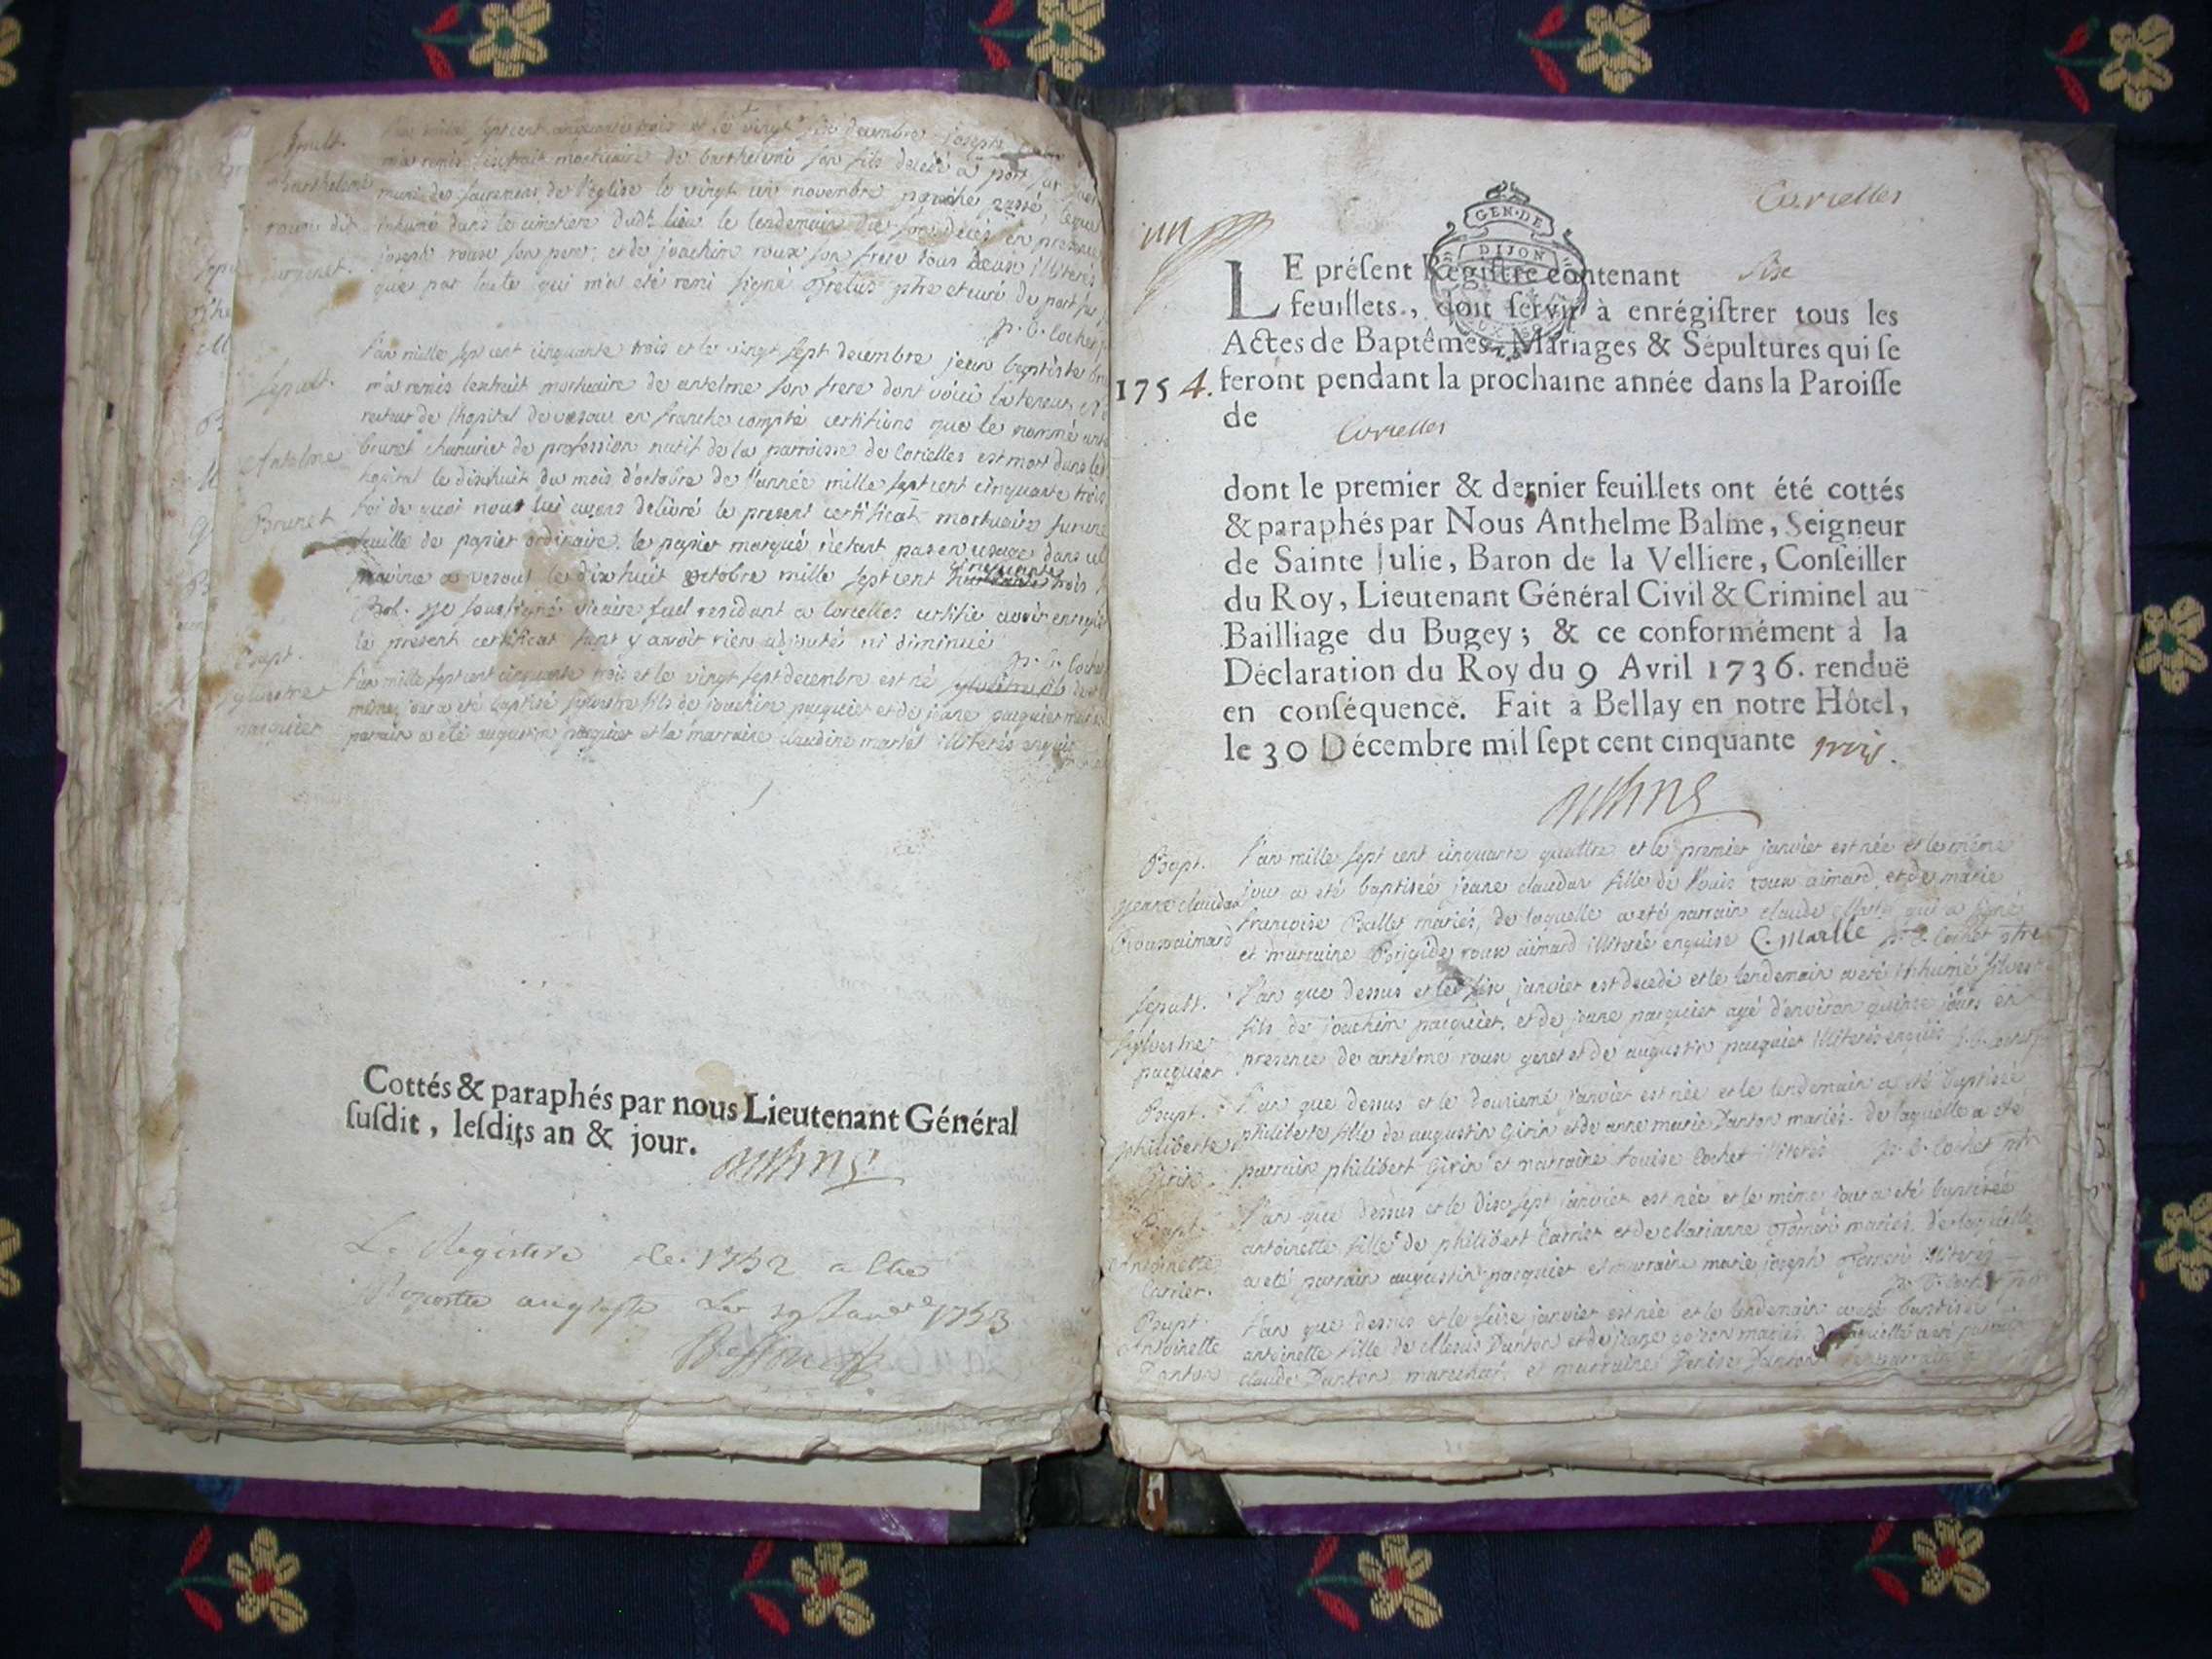 Sepult.
l'an mille sept cent cinquante trois et le vingt six decembre joseph
m'a remis l'extrait mortuaire de barthelemi son fils decédé a port sur
barthelemi
muni des sacremens de l'eglise le vingt un novembre proche passé, lequel
roux dit
inhumé dans le cimetiere dudt lieu le lendemain de son deces en presence
joseph roux son pere, et de joachim roux son frere tous deux illiterés
que par lacte qui m'a eté remi signé prêtre et curé de port
p. C. Cochet
l'an mille sept cent cinquante trois et le vingt sept decembre jean baptiste
Sepult.
m'a remis l'extrait mortuaire de antelme son frere dont voici la teneur
recteur de l'hopital de vesoul en franche compté certifions que le nommé
Antelme
brunet chanvrier de profession natif de la parroisse de Corcelles est mort dans led
hopital le dixhuit du mois d'octobre de l'année mille sept cent cinquante trois
Brunet
foi de quoi nous lui avons delivré le present certificat mortuaire sur une
feuille de papier ordinaire. le papier marqué n'etant pas en usage dans
province a vesoul le dixhuit octobre mille sept cent cinquante trois
je soussigné vicaire residant a Corcelles certifie avoir enregistré
le present certificat sans y avoir rien adjouté ni diminué
p. C. Cochet
Bapt.
l'an mille sept cent cinquante trois et le vingt sept decembre est né
sylvestre
même jour a eté baptisé sylvestre fils de joachim pacquier et de jeane pacquier mariés
pacquier
parrain a été augustin pacquier et la marraine claudine martel illiterés enquis
Cottés & paraphés par nous Lieutenant Général
susdit, lesdits an & jour.
Le Registre de 1752 a Etté
au greffe Le 19 Janv 1753
Corcelles
un
GEN·DE
DIJON
LE présent Registre contenant six
feuillets., doit servir à enrégistrer tous les
Actes de Baptêmes, Mariages & Sépultures qui se
1754. feront pendant la prochaine année dans la Paroisse
de Corcelles
dont le premier & dernier feuillets ont été cottés
& paraphés par Nous Anthelme Balme, Seigneur
de Sainte Julie, Baron de la Velliere, Conseiller
du Roy, Lieutenant Général Civil & Criminel au
Bailliage du Bugey; & ce conformément à la
Déclaration du Roy du 9 Avril 1736. renduë
en conséquence. Fait à Bellay en notre Hôtel,
le 30 Décembre mil sept cent cinquante trois.
Bapt.
l'an mille sept cent cinquante quattre et le premier janvier est née et le même
jeane clauda
jour a eté baptisée jeane clauda fille de louis roux aimard et de marie
Rouxaimard
francoise Ballet mariés, de laquelle a eté parrain claude qui a signé
et marraine Brigide roux aimard illiterée enquise C. Marlle p. C. Cochet ptre
Sepult.
l'an que dessus et le six janvier est decedé et le lendemain a eté inhumé silvestre
Sylvestre
fils de joachim pacquier, et de jeane pacquier agé d'environ quinze jours en
pacquier
presence de antelme roux genet et de augustin pacquier illiterés enquis p. C. Cochet
Bapt.
l'an que dessus et le douzieme janvier est née et le lendemain a eté baptisée
philiberte
philiberte fille de augustin Girin et de anne marie Danton mariés. de laquelle a eté
Girin.
parrain philibert Girin et marraine louise Cochet illiterés p. C. Cochet ptre
Bapt.
l'an que dessus et le dix sept janvier est née et le même jour a eté baptisée
Antoinette
antoinette fille de philibert Carrier et de Marianne mariés, de laquelle
Carrier.
a eté parrain augustin pacquier et marraine marie joseph illiterés
p. C. Cochet ptre
Bapt.
l'an que dessus et le seize janvier est née et le lendemain a eté baptisée
Antoinette
antoinette fille de Danton et de jeane mariés, de laquelle a eté parrain
Danton
claude Danton marechal et marraine Denise Danton